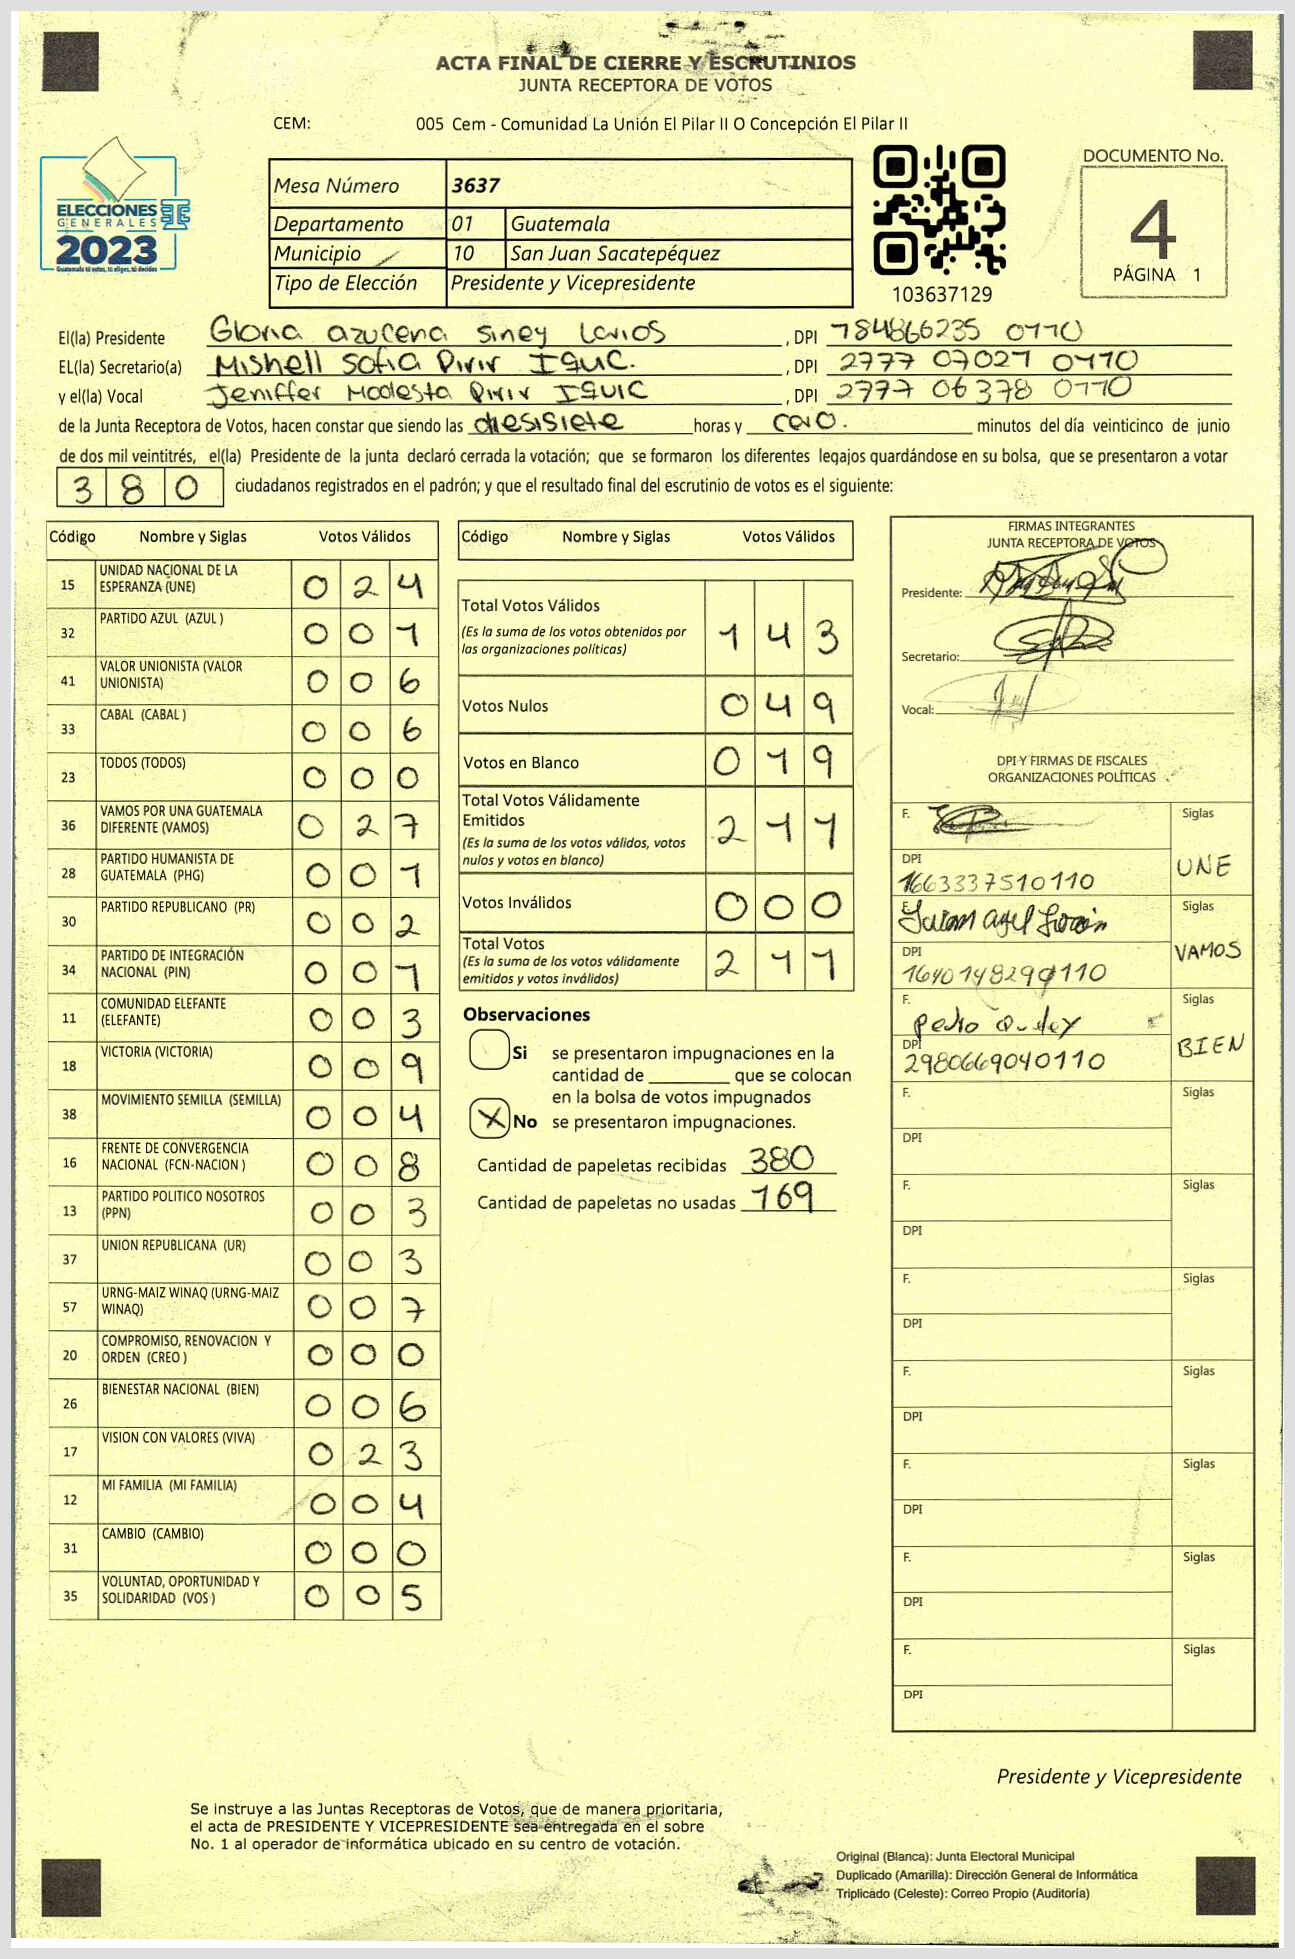 ACTA FINAL DE CIERRE Y ESCRUTINIOS
JUNTA RECEPTORA DE VOTOS
CEM: 005 Cem - Comunidad La Unión El Pilar II O Concepción El Pilar II
ELECCIONES
GENERALES
2023
Guatemala tú votas, tú eliges, tú decides
Mesa Número 3637
Departamento 01 Guatemala
Municipio 10 San Juan Sacatepéquez
Tipo de Elección Presidente y Vicepresidente
103637129
DOCUMENTO No.
4
PÁGINA 1
El(la) Presidente Gloria azucena Siney Larios, DPI 784866235 0110
EL(la) Secretario(a) Mishell Sofia Pirir IQUIC., DPI 2777 07021 0110
y el(la) Vocal Jeniffer Modesta Pirir IQUIC, DPI 2777 06378 0110
de la Junta Receptora de Votos, hacen constar que siendo las diesisiete horas y cero. minutos del día veinticinco de junio
de dos mil veintitrés, el(la) Presidente de la junta declaró cerrada la votación; que se formaron los diferentes legajos guardándose en su bolsa, que se presentaron a votar
380 ciudadanos registrados en el padrón; y que el resultado final del escrutinio de votos es el siguiente:
Código Nombre y Siglas Votos Válidos
15 UNIDAD NACIONAL DE LA ESPERANZA (UNE) 0 2 4
32 PARTIDO AZUL (AZUL ) 0 0 1
41 VALOR UNIONISTA (VALOR UNIONISTA) 0 0 6
33 CABAL (CABAL ) 0 0 6
23 TODOS (TODOS) 0 0 0
36 VAMOS POR UNA GUATEMALA DIFERENTE (VAMOS) 0 2 7
28 PARTIDO HUMANISTA DE GUATEMALA (PHG) 0 0 1
30 PARTIDO REPUBLICANO (PR) 0 0 2
34 PARTIDO DE INTEGRACIÓN NACIONAL (PIN) 0 0 1
11 COMUNIDAD ELEFANTE (ELEFANTE) 0 0 3
18 VICTORIA (VICTORIA) 0 0 9
38 MOVIMIENTO SEMILLA (SEMILLA) 0 0 4
16 FRENTE DE CONVERGENCIA NACIONAL (FCN-NACION ) 0 0 8
13 PARTIDO POLITICO NOSOTROS (PPN) 0 0 3
37 UNION REPUBLICANA (UR) 0 0 3
57 URNG-MAIZ WINAQ (URNG-MAIZ WINAQ) 0 0 7
20 COMPROMISO, RENOVACION Y ORDEN (CREO ) 0 0 0
26 BIENESTAR NACIONAL (BIEN) 0 0 6
17 VISION CON VALORES (VIVA) 0 2 3
12 MI FAMILIA (MI FAMILIA) 0 0 4
31 CAMBIO (CAMBIO) 0 0 0
35 VOLUNTAD, OPORTUNIDAD Y SOLIDARIDAD (VOS ) 0 0 5
Código Nombre y Siglas Votos Válidos
Total Votos Válidos 1 4 3
(Es la suma de los votos obtenidos por
las organizaciones políticas)
Votos Nulos 0 4 9
Votos en Blanco 0 1 9
Total Votos Válidamente
Emitidos 2 1 1
(Es la suma de los votos válidos, votos
nulos y votos en blanco)
Votos Inválidos 0 0 0
Total Votos 2 1 1
(Es la suma de los votos válidamente
emitidos y votos inválidos)
Observaciones
Si se presentaron impugnaciones en la
cantidad de ________ que se colocan
en la bolsa de votos impugnados
X No se presentaron impugnaciones.
Cantidad de papeletas recibidas 380
Cantidad de papeletas no usadas 169
FIRMAS INTEGRANTES
JUNTA RECEPTORA DE VOTOS
Presidente:
Secretario:
Vocal:
DPI Y FIRMAS DE FISCALES
ORGANIZACIONES POLÍTICAS
F. Siglas
DPI UNE
1663337510110
F. Siglas
DPI VAMOS
F. Pedro Siglas
DPI BIEN
2980669040110
F. Siglas
DPI
F. Siglas
DPI
F. Siglas
DPI
F. Siglas
DPI
F. Siglas
DPI
F. Siglas
DPI
F. Siglas
DPI
Presidente y Vicepresidente
Se instruye a las Juntas Receptoras de Votos, que de manera prioritaria,
el acta de PRESIDENTE Y VICEPRESIDENTE sea entregada en el sobre
No. 1 al operador de informática ubicado en su centro de votación.
Original (Blanca): Junta Electoral Municipal
Duplicado (Amarilla): Dirección General de Informática
Triplicado (Celeste): Correo Propio (Auditoría)